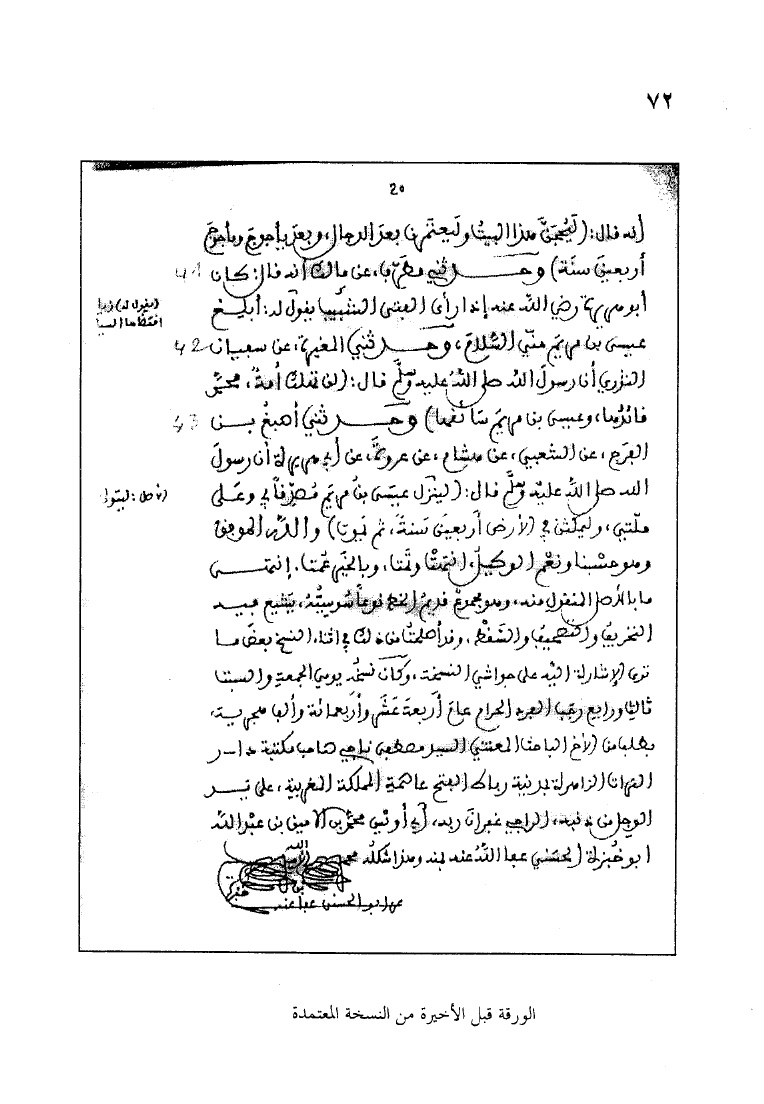 ٧٢
20
أنه قال: (ليُحجن هذا البيت وليعتمرن بعد الدجال، وبعد يأجوج ومأجوج
أربعين سنة) وحدثني مطرف، عن مالك أنه قال: كان 41
أبو هريرة رضي الله عنه إذا رأى الفتى الشبيب يقول له: أبلغ
عيسى بن مريم مني السلام، وحدثني المغيرة، عن سفيان 42
الثوري أن رسول الله صلى الله عليه وسلم قال: (لن تهلك أمة، محمد
قائدها، وعيسى بن مريم سائقها) وحدثني أصبغ بن 43
الفرج، عن الشعبي، عن هشام، عن عروة، عن أبي هريرة أن رسول
الله صلى الله عليه وسلم قال: (لينزل عيسى بن مريم مصدقا بي وعلى
ملتي، وليمكثن في الأرض أربعين سنة، ثم يموت) والله الموفق
وهو حسبنا ونعم الوكيل، انتهت، وبالخير عمت. انتهى
ما بالأصل المنقول منه، وهو مجموع قديم الخط نوعا يشيع فيه
التحريف والتصحيف والسقط، وقد أصلحت من ذلك في أثناء النسخ بعض ما
ترى الإشارة إليه على حواشي النسخة، وكان نسخه يومي الجمعة والسبت
ثالث ورابع رجب الفرد الحرام عام أربعة عشر وأربعمائة وألف هجرية،
بطلب من الأخ الباحث المعتني السيد مصطفى ناجي صاحب مكتبة دار
التراث الزاهرة بمدينة رباط الفتح عاصمة المملكة المغربية، على يد
الوجل من ذنبه، الراجي غفران ربه، أبي أويس محمد بن الأمين بن عبد الله
أبو خبزة الحسني عفا الله عنه بمنه وهذا شكله محمد
بوالحسني عفا عنه
الورقة قبل الأخيرة من النسخة المعتمدة